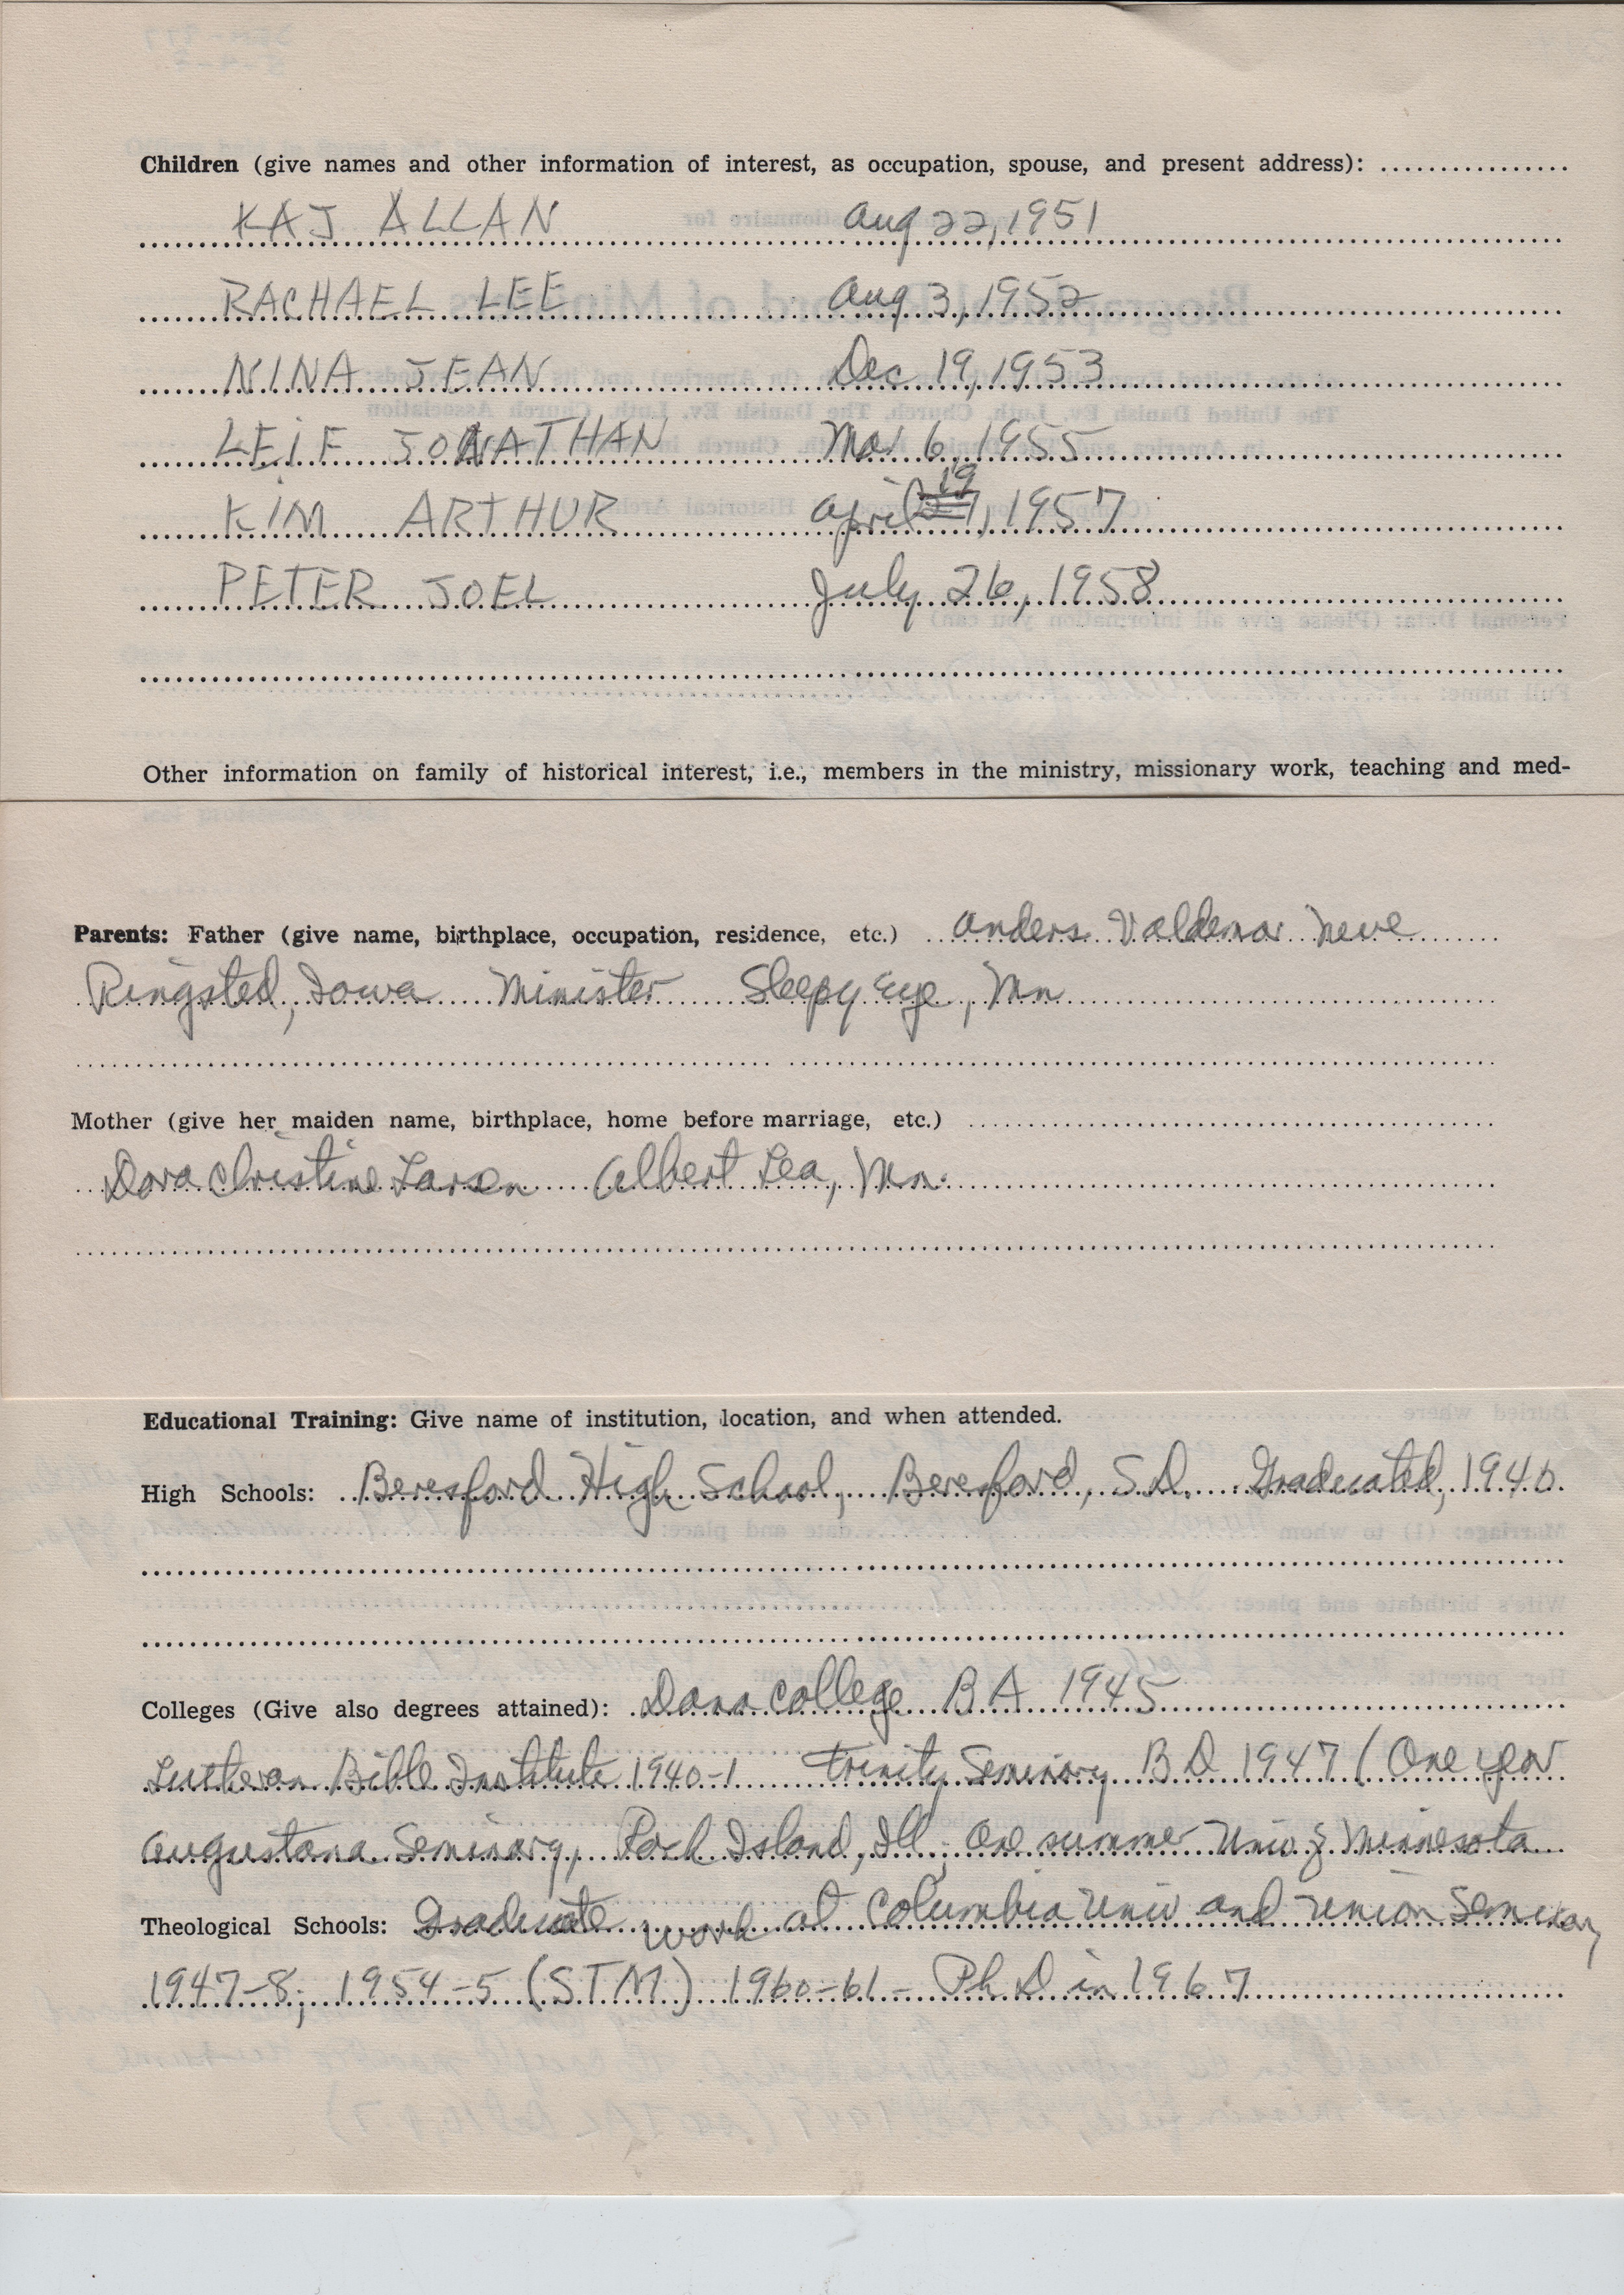 Children (give names and other information of interest, as occupation, spouse, and present address):
KAJ ALLAN Aug 22, 1951
RACHAEL LEE Aug 3, 1952
NINA JEAN Dec 19, 1953
LEIF JONATHAN Mar 6, 1955
KIM ARTHUR April 19, 1957
PETER JOEL July 26, 1958
Other information on family of historical interest, i.e., members in the ministry, missionary work, teaching and med-
Parents: Father (give name, birthplace, occupation, residence, etc.) Anders Valdemar Neve
Ringsted, Iowa Minister Sleepy Eye, Mn
Mother (give her maiden name, birthplace, home before marriage, etc.)
Dora Christine Larsen Albert Lea, Mn.
Educational Training: Give name of institution, location, and when attended.
High Schools: Beresford High School, Beresford, S.D. Graduated, 1940.
Colleges (Give also degrees attained): Dana College B A 1945
Lutheran Bible Institute 1940-1 Trinity Seminary B D 1947 (One year
Augustana Seminary, Rock Island, Ill; One summer Univ of Minnesota
Theological Schools: Graduate work at Columbia Univ and Union Seminary
1947-8; 1954-5 (STM) 1960-61- Ph D in 1967